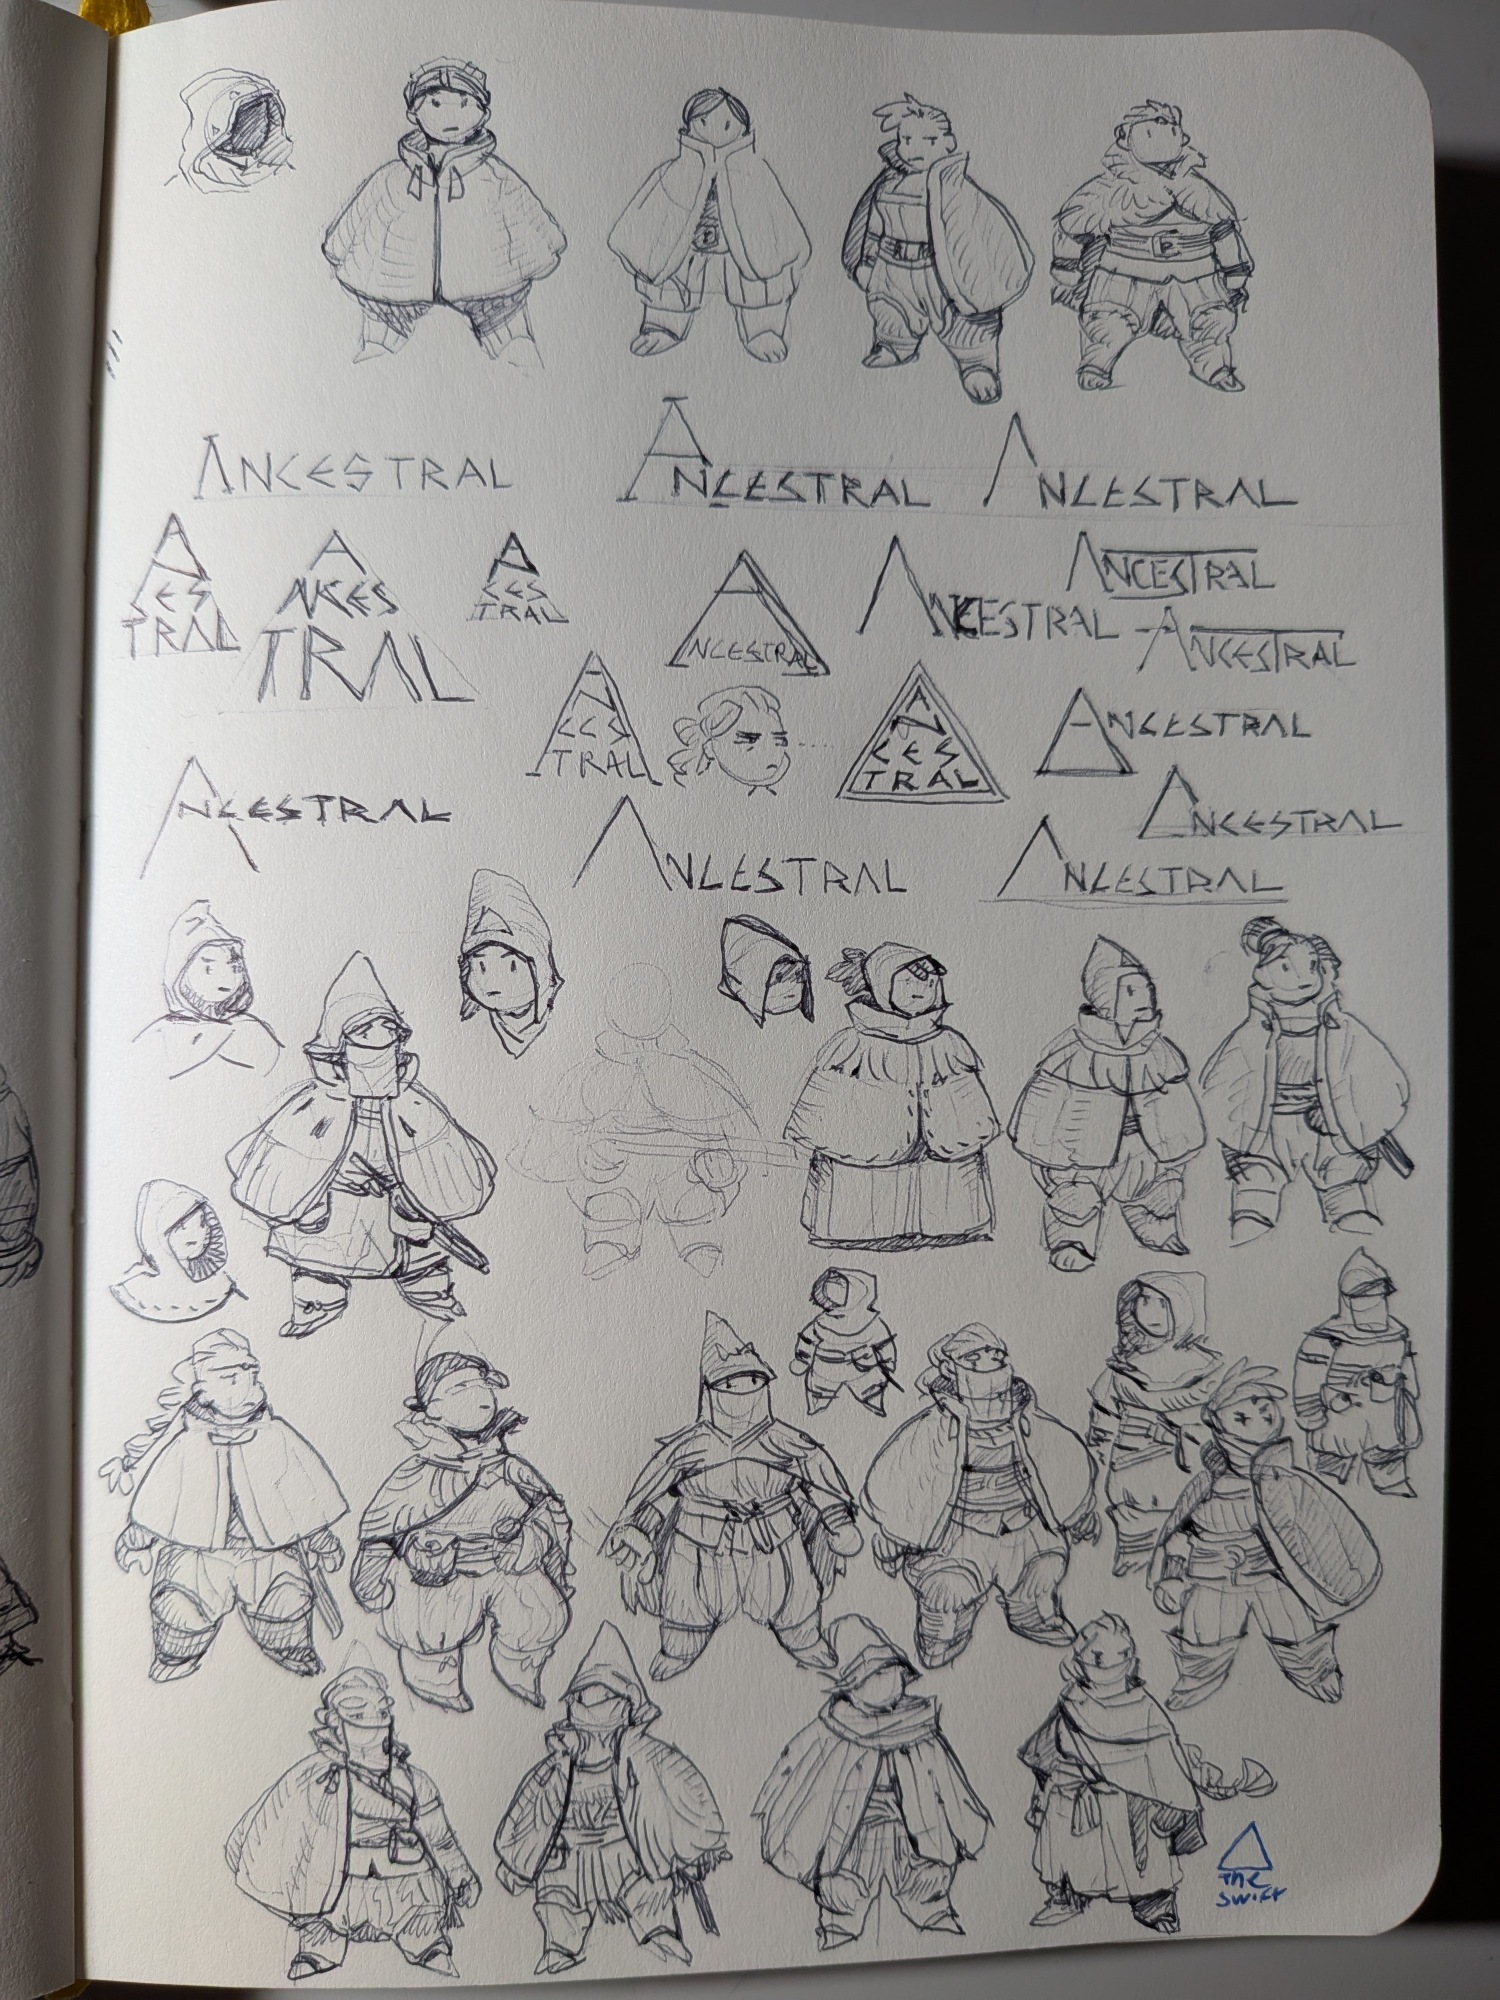 ANCESTRAL
ANCESTRAL
ANCESTRAL
A
CES
TRAL
A
NCES
TRAL
A
CES
TRAL
ANCESTRAL
ANCESTRAL
ANCESTRAL
ANCESTRAL
A
N
CES
TRAL
A
N
CES
TRAL
ANCESTRAL
ANCESTRAL
ANCESTRAL
ANCESTRAL
ANCESTRAL
THE
SWIFT